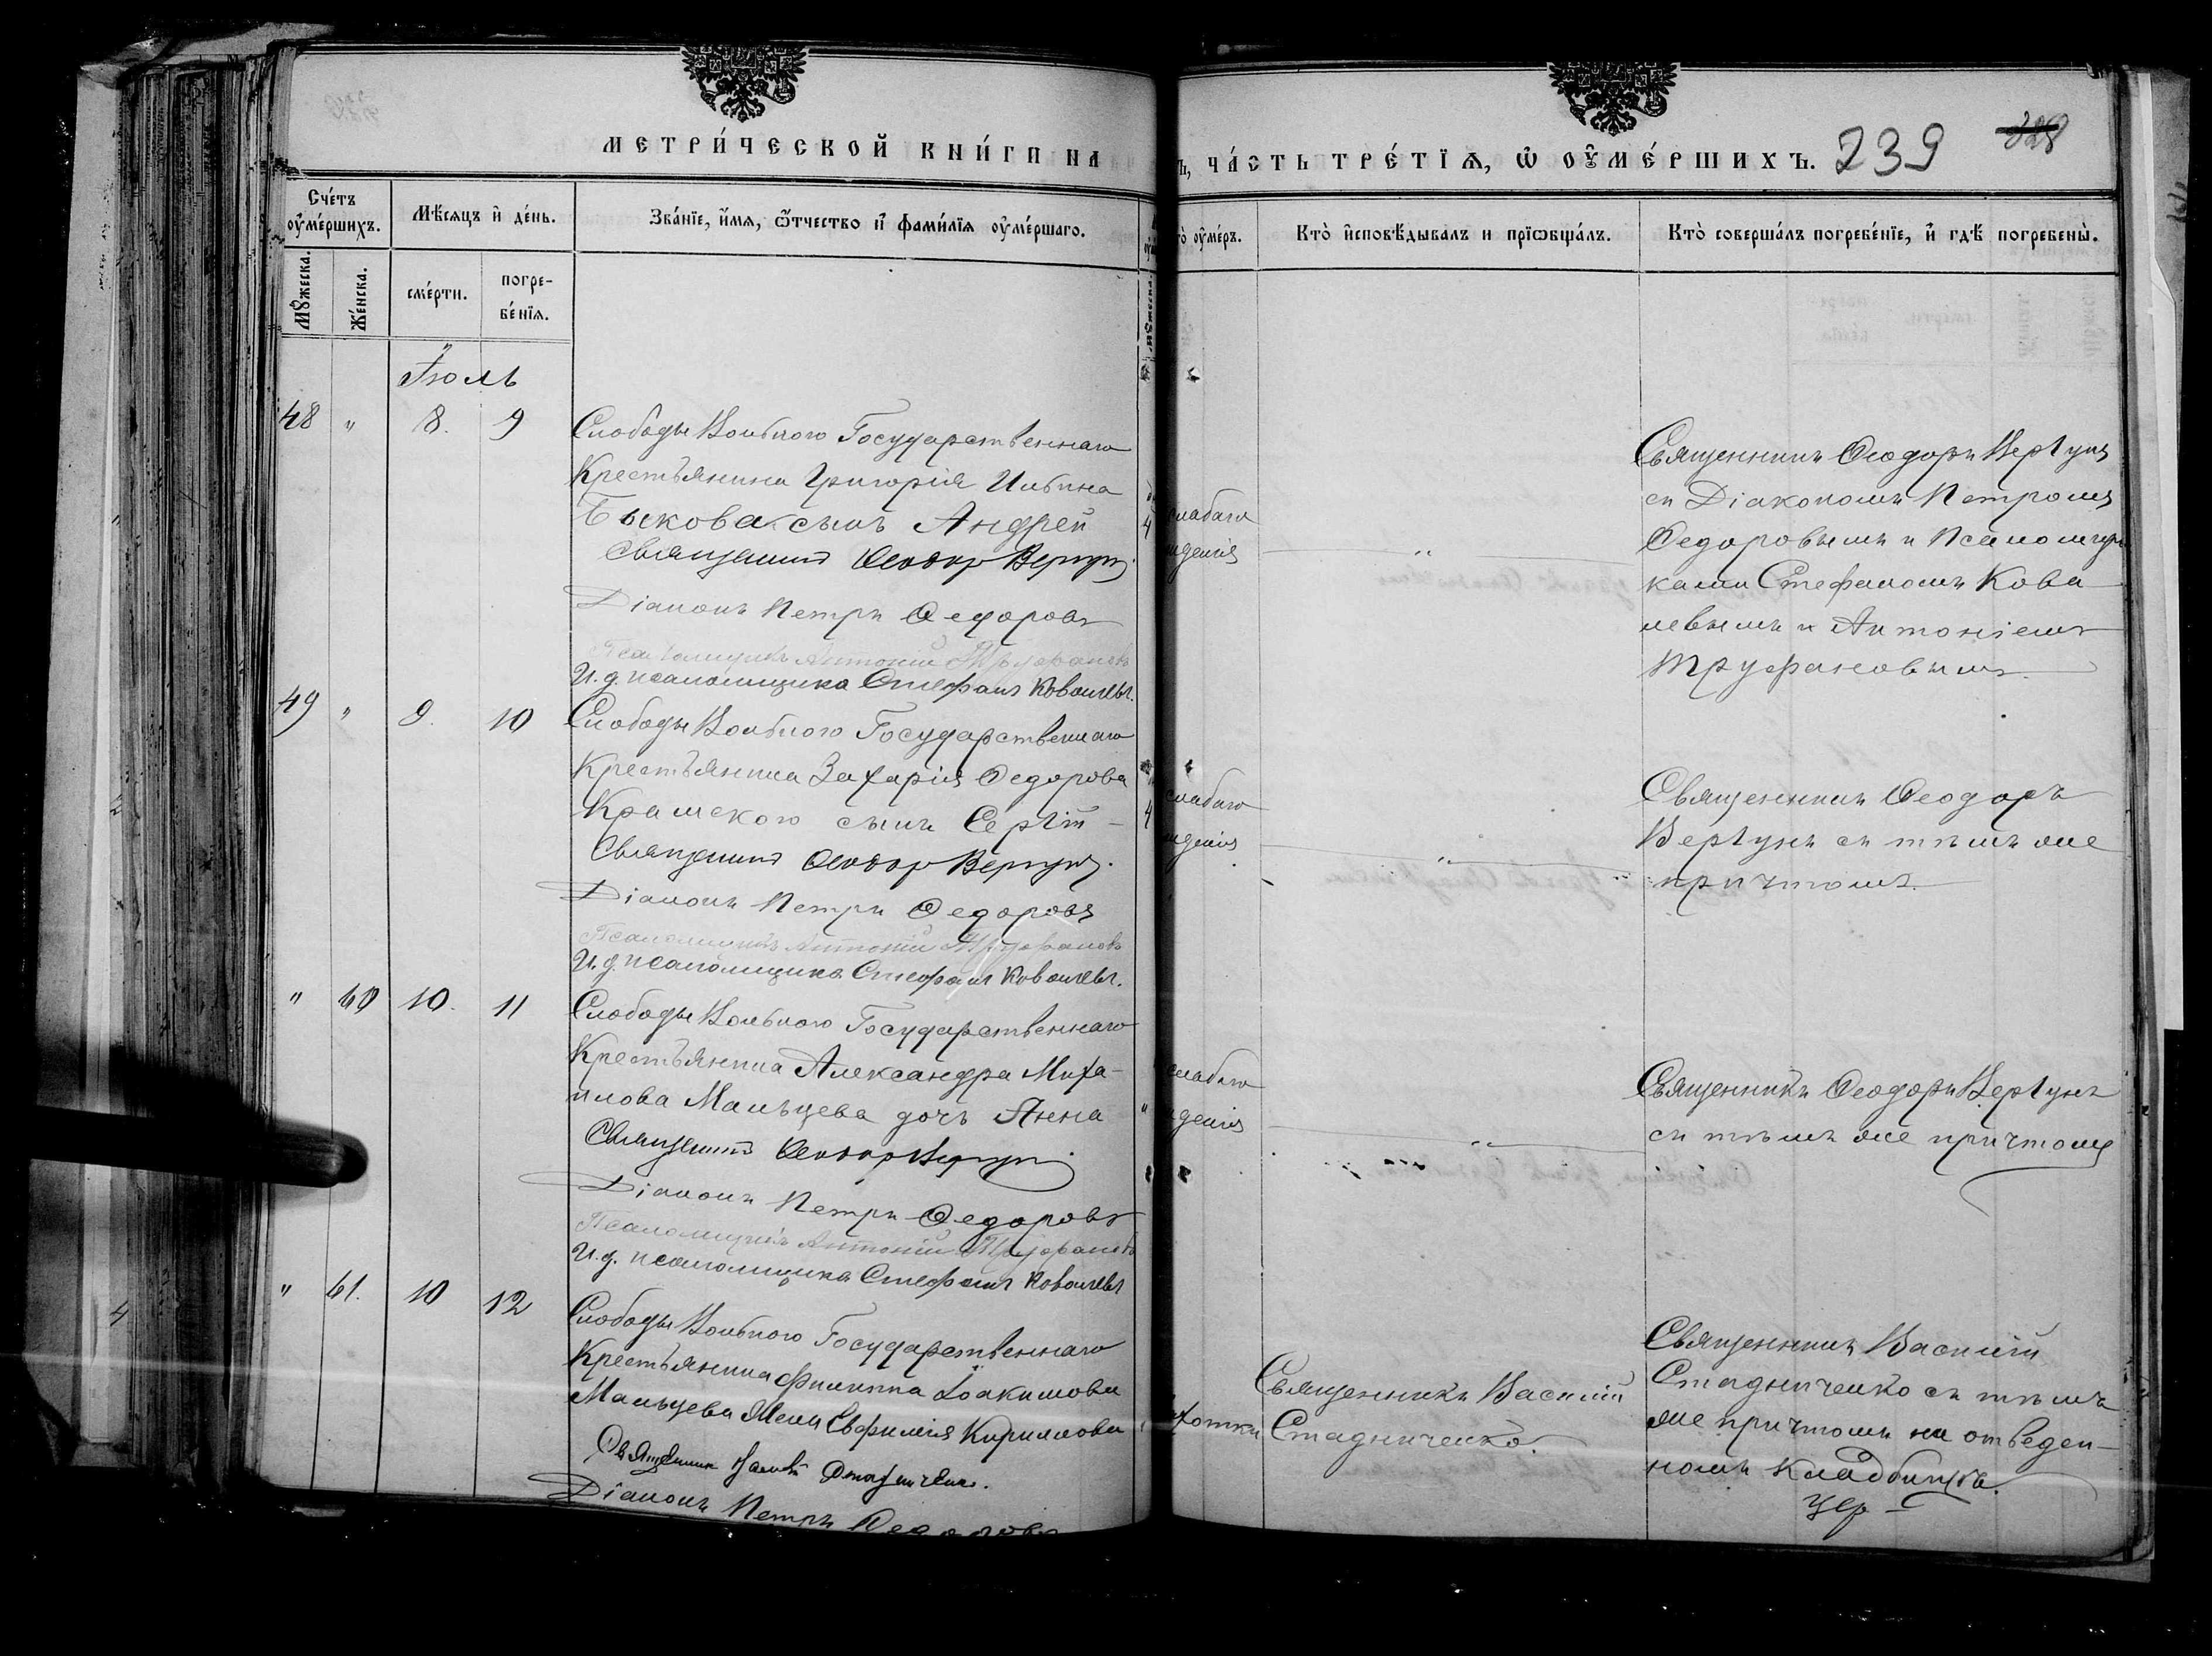 МЕТРИ́ЧЕСКОЙ КНИ́ГИ НА
Ъ, ЧА́СТЬ ТРЕ́ТЇѦ, Ѡ҆ ОУ҆МЕ́РШИХЪ. 239
Сче́тъ оу҆ме́ршихъ.
Мѣ́сѧцъ и҆ де́нь.
Зва́нїе, и҆́мѧ, ѻ҆́тчество и҆ фами́лїѧ оу҆ме́ршаго.
оу҆ме́ръ.
Кто̀ и҆сповѣ́дывалъ и прїѡбща́лъ.
Кто̀ соверша́лъ погребе́нїе, и҆ гдѣ̀ погребены̀.
Мꙋ́жеска.
Же́нска.
сме́рти.
погре-
бе́нїѧ.
Іюль
48 " 8. 9
Слободы Вольного Государственнаго
Крестьянина Григорія Ильина
Быкова сынъ Андрей
Священникъ Ѳеодоръ Вергунъ
Діаконъ Петръ Ѳедоровъ
Псаломщикъ Антоній Труфановъ
И. д. псаломщика Стефанъ Ковалевъ.
слабаго
"
Священникъ Ѳеодоръ Вергунъ
съ Діакономъ Петромъ
Ѳедоровымъ и Псаломщи
ками Стефаномъ Кова
левымъ и Антоніемъ
Труфановымъ.
49 " 9. 10
Слободы Вольного Государственнаго
Крестьянина Захарія Ѳедорова
Крамского сынъ Сергій
Священникъ Ѳеодоръ Вергунъ.
Діаконъ Петръ Ѳедоровъ
Псаломщикъ Антоній Труфановъ
И. д. псаломщика Стефанъ Ковалевъ.
слабаго
"
Священникъ Ѳеодоръ
Вергунъ съ тѣмъ же
причтомъ.
" 60 10. 11
Слободы Вольного Государственнаго
Крестьянина Александра Миха-
илова Мальцева дочь Анна
Священникъ Ѳеодоръ Вергунъ
Діаконъ Петръ Ѳедоровъ
Псаломщикъ Антоній Труфановъ
И. д. псаломщика Стефанъ Ковалевъ
слабаго
"
Священникъ Ѳеодоръ Вергунъ
съ тѣмъ же причтомъ
" 61. 10 12
Слободы Вольного Государственнаго
Крестьянина Филиппа Іоакимова
Мальцева жена Евфимія Кирилова
Священникъ Василій Стадниченко.
Діаконъ Петръ Ѳедоровъ
Священникъ Василій
Стадниченко.
Священникъ Василій
Стадниченко съ тѣмъ
же причтомъ на отведен-
номъ кладбищѣ.